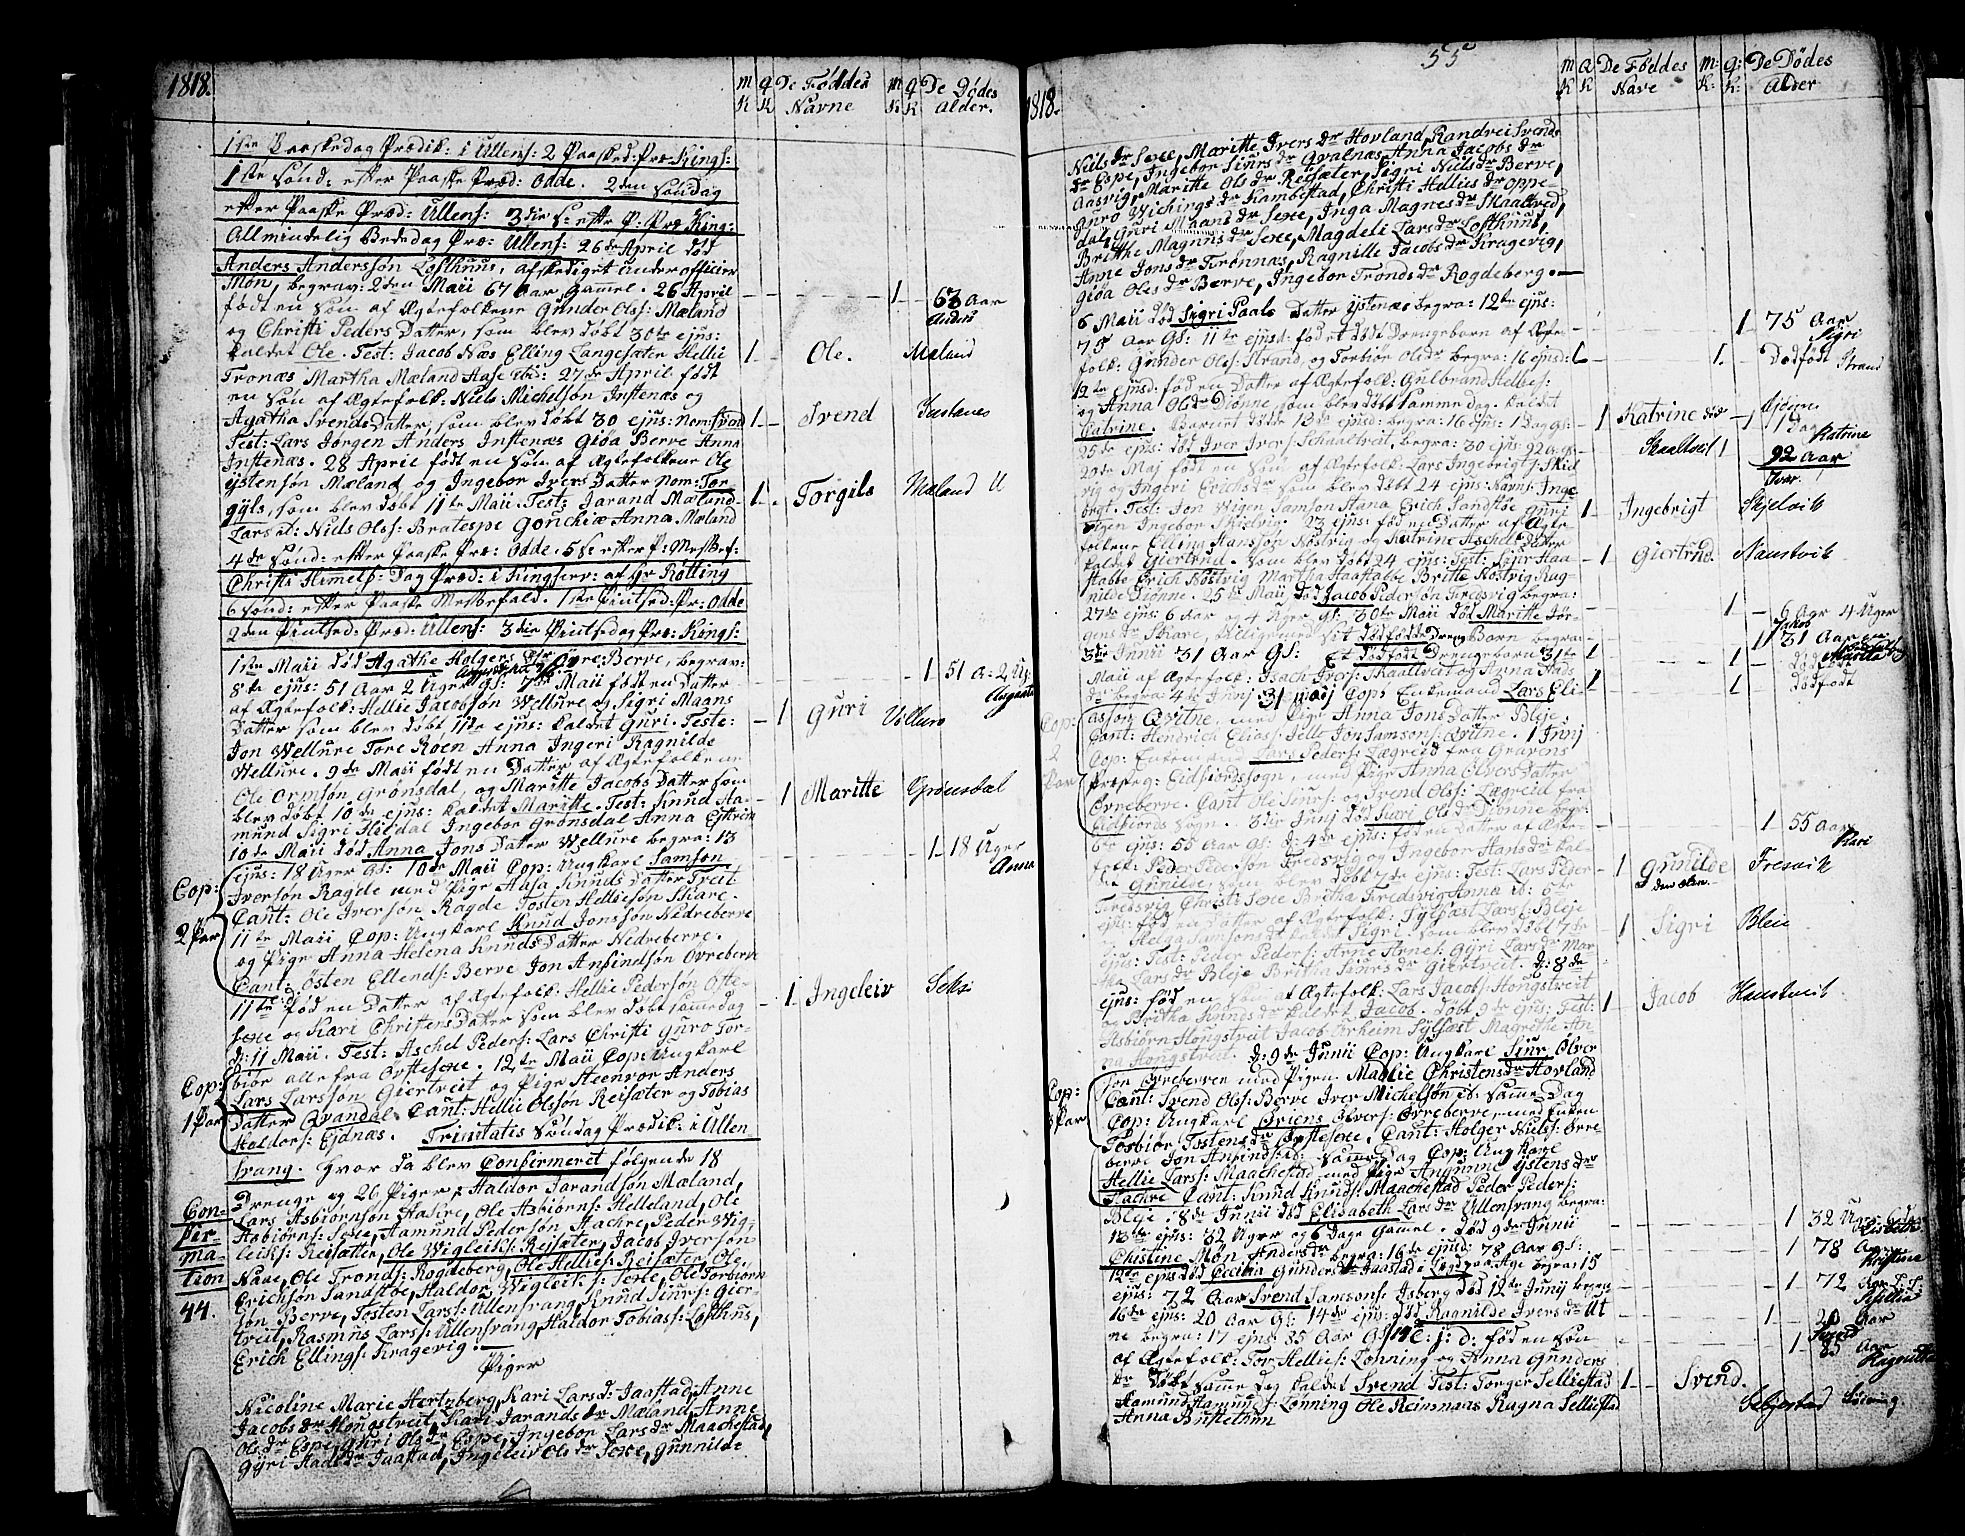 1818.
m K
q K
De Føddes Navne
m K
q K
De Dødes Alder.
1ste Paaskedag Prædik: i Ullens: 2 Paasked: Præ: Kings:
1ste Sønd: efter Paaske Præd: Odde. 2den Søndag
efter Paaske Præd: Ullens: 3die S: efter P: Præ: King:
Allmindelig Bededag Præ: Ullens: 26de April død
Anders Anderssøn Lofthuus, afskediget under officier
Møn, begrav: 2den Maii 67 Aar Gammel. 26 April
født en Søn af Ægtefolkene Gunder Olss: Mæland
og Christi Peders Datter, som blev døbt 30te ejus:
kaldet Ole. Test: Jacob Næs Elling Langesæter Hellie
Tronæs Martha Mæland Aase ibid: 27de April født
en Søn af Ægtefolk: Niels Michelsøn Instenæs og
Agatha Svends Datter, som blev døbt 30 ejus: nom: Svend
Test: Lars Jørgen Anders Instenæs Giøa Berve Anna
Instenæs. 28 April født en Søn af Ægtefolkene Ole
Ystensøn Mæland og Ingebor Ivers Datter nom: Tor
gyls, som blev døbt 11te Maii. Test: Jarand Mæland
Lars al: Niels Olss: Bratespe Gonchiæ Anna Mæland
4de Sønd: efter Paaske Præ: Odde. 5 S: efter P: Messef:
Christi Himelf: Dag Præd: i Kingserv: af Hr Røtting
6 Sønd: efter Paaske Messefald. 1ste Pintsed: Pr: Odde
2den Pintsed: Præd: Ullens: 3die Pintsedag Præ: Kings:
1ste Maii død Agathe Holgers Dr Øvre Berve, begrav:
8de ejus: 51 Aar 2 Uger Gl: 7de Maii født en Datter
af Ægtefolk: Hellie Jacobsøn Wellure og Sigri Maans
Datter som blev døbt 11te ejus: kaldet Guri. Teste:
Jon Wellure Tore Roen Anna Ingeri Ragnilde
Wellure. 9de Maii født en Datter af Ægtefolkene
Ole Ormsøn Grønsdal, og Maritte Jacobs Datter som
blev døbt 10de ejus: kaldet Maritte. Test: Knud Aa-
mund Sigri Hildal Ingebor Grønsdal Anna Ejtrem
10de Maii død Anna Jons Datter Wellure begra: 13
ejus: 18 Uger Gl: 10de Maii Cop: Ungkarl Samson
Iversøn Ragde med Pige Aasa Knuds Datter Treit
Cant: Ole Iversøn Ragde Tosten Helliesøn Skiare.
11te Maii Cop: Ungkarl Knud Jonssøn Nedreberve
og Pige Anna Helena Knuds Datter Nedreberve.
Cant: Østen Ellends: Berve Jon Anfindsøn Øvreberve
11te fød en Datter af Ægtefolk: Hellie Pedersøn Ofte-
sexe og Kari Christens Datter som blev døbt same dag
d: 11 Maii. Test: Aschel Peders: Lars Christi Guro Tor-
biør alle fra Opstesexe. 12te Maii Cop: Ungkarl
Lars Larssøn Giertveit og Pige Steenvor Anders
Datter Qvandal. Cant: Hellie Olsson Reisæter og Tobias
Haldors: Ejdnæs. Trinitatis Søndag Prædik: i Ullen-
svang. Hvor da blev Confirmeret følgende 18
Drenge og 26 Piger, Haldor Jarandsøn Mæland,
Lars Asbiørnsøn Haskre, Ole Asbiørns: Helleland, Ole
Asbiørns: Sexe, Aamund Pedersøn Aachre, Peder Vig-
leiks: Reisætter, Ole Wigleiks: Reisæter, Jacob Iversøn
Naae, Ole Tronds: Rogdeberg, Ole Hellies: Reisæter, Ole
Erichsøn Sandstøe, Haldor Wigleiks: Sexe, Ole Torbiørn
søn Berve, Tosten Lars: Ullensvang, Knud Siurs: Gier-
tveit, Rasmus Lars: Ullensvang, Haldor Tobiass: Lofthuus,
Erich Ellings: Kragevig.
Piger
Nicoline Marie Hertzberg, Kari Larsd: Jaastad, Anne
Jacobs Dr Hougstveit, Kari Jarands Dr Mæland, Anne
Ols Dr Espe, Guri Ols Dr Espe, Ingebor Lars Dr Maachestad,
Gyri Aads Dr Jaastad, Ingeleiv Ols Dr Sexe, Gunnild
Cop:
2 Par
Cop:
1 Par
Con-
fir-
ma-
tion
44.
1
63 Aar
Anders
1 Ole. Mæland
1 Svend Instenes
1 Torgils Mæland U
1 51 A: 2 Ug.
Aagaata
1 Guri Velluro
1 Maritte Grönsdal
1 18 Uger
Anna
1 Ingeleiv Seksi
55
1818.
m K
q K
De Føddes Navne
m: K:
q: K:
De Dødes Alder
Niels Dr Sexe, Maritte Ivers Dr Hovland, Randvei Svends
Dr Espe, Ingebor Siurs Dr Qvalnæs, Anna Jacobs Dr
Aasvig, Maritte Ols Dr Reisæter, Sigri Niels Dr Berve,
Guro Wichings Dr Kambestad, Christi Hellies Dr Oppe-
dal, Guri Maans Dr Sexe, Inga Magnes Dr Skaaltved,
Britthe Magnus Dr Sexe, Magdeli Lars Dr Lofthuus,
Anne Jons Dr Tronnæs, Ragnille Jacobs Dr Kragevig,
Giøa Oles Dr Berve, Ingebor Tronds Dr Rogdeberg.
6 Maii død Sigri Paals Datter Ystenæs begra: 12te ejus:
75 Aar Gl: 11te ejusd: fød et dødt Drengebarn af Ægte
folk: Gunder Olss: Strand, og Torbiør Olsdr begra: 16 ejusd:
12te ejusd: fød en Datter af Ægtefolk: Gulbrand Helles:
og Anna Ols Dr Diønne som blev døbt samme dag. kaldet
Catrine. Barnet døde 13de ejusd: begra: 16 ejus: 1 Dag Gl:
25de ejus: død Iver Ivers: Schaaltveit, begra: 30 ejus: 92 Ar Gl:
2de Maj født en Søn af Ægtefolk: Lars Ingebrigts: Skiel
vig og Ingeri Erichs Dr som blev døbt 24 ejus: Navn: Inge
brgt. Test: Jon Wigen Samson Hana Erich Sandstøe Gunj
Wigen Ingebor Skielvig. 23 ejus: fød en Datter af Ægte
folkene Elling Hansøn Nøstvig og Katrine Aschels Datter
kaldet Giertrud. som blev døbt 24 ejus: Test: Siur Haa-
stabbe Erich Nøstvig Martha Haastabbe Britte Nøstvig Rag-
nilde Diønne. 25de Maii død Jacob Pedersøn Tredsvig begra:
27de ejus: 6 Aar og 4 Uger Gl: 30te Maii død Maritte Jør-
gens Dr Skiare, tilligemed sit dødfødde Dreng Barn begra:
3die Junii 31 Aar Gl: Et dødfødt Drengebarn 31te
Maii af Ægtefolk: Isach Ivers: Skaaltveit og Anna Aads
Dr begra: 4de Junj 31 Maj Cop: Enkemand Lars Eli-
asson Qvitne, med Pige Anna Jons Datter Bleje.
Cant: Hendrich Elias: Sille Jon Samsons: Qvitne. 1 Junj
Cop: Enkemand Lars Peders: Lægreid fra Gravens
Præsteg: Eidfiords Sogn, med Pige Anna Olvers Datter
Øvreberve. Cant Ole Siurs: og Svend Olss: Lægreid fra
Eidfiords Sogn. 3die Junj død Kari Ols Dr Diønne begr:
6te ejus: 55 Aar Gl: d: 4de ejus: fød en Datter af Ægte-
folk: Peder Pedersøn Fredsvig og Ingebor Hans Dr kal-
de Gunilde som blev døbt 7de ejus: Test: Lars Peder
Fredsvig Christi Sexe Britha Fredsvig Anna ib: 6te
ejus: fød en Datter af Ægtefolk: Sylfæst Lars: Bleje
og Helga Samsons Dr kaldet Sigri som blev døbt 7de
ejus: Test: Peder Peders: Arne Arnes: Gyri Lars Dr Mar
tha Lars Dr Bleje Britha Siurs Dr Giertveit. d: 8de
ejus: fød en Søn af Ægtefolk: Lars Jacobs: Hougstveit
og Britha Svends Dr kaldet Jacob. døbt 9de ejus: Test:
Asbiørn Hougstveit Jacob Årheim Sylfæst Magrithe An
na Hougstveit. d: 9de Junii Cop: Ungkarl Siur Olver
søn Øvreberve med Pigen Madlie Christens Dr Hovland
Cant: Svend Olss: Berve Iver Michelsøn ib: Same Dag
Cop: Ungkarl Briens Olvers: Øvreberve, med Enken
Tosbiør Tostens Dr Opstesexe, Cant: Holger Niels: Øvre-
berve Jon Anfinds: ibd: Same Dag Cop: Ungkarl
Hellie Lars: Maachestad med Pige Angunne Ystens Dr
Hachre Cant: Knud Knuds: Maachestad Peder Peders:
Bleje. 8de Junii død Elisabeth Lars Dr Ullensvang begra:
13de ejus: 32 Uger og 6 Dage Gamel. død 9de Junii
Christine Møn Anders Dr begra: 16de ejusd: 78 Aar Gl:
12te ejus død Cecilia Gunders Dr Jaastad i Lægd paa Age begra: 15
ejus: 72 Aar Svend Samsøns: Isberg død 12te Junj begra
16de ejus: 20 Aar Gl: 14de ejus: død Ragnilde Ivers Dr Ut
ne begra: 17 ejus: 85 Aar Gl: 14de j: d: fød en Søn
af Ægtefolk: Tor Hellies: Lønning og Anna Gunders
Dr døbt Same Dag kaldet Svend Test: Torger Selliestad
Aamund Aamund: Lønning Ole Reinnars Ragna Selliestad
Anna Bustethun
Cop:
2
Par
Cop:
3 Par
1 75 Aar
Sigri
1 1. Dødfødt Strand
1 Katrine død 1 1 Dag
Katrine
Skaaltveit 1
92 Aar
Ivar.
1 Ingebrigt Skjelvik
1 Giertrud. Naustvik
1 6 Aar 4 Uger
Jakob
1 31 Aar
Marita
1
1 dødfødt
1 55 Aar
Kari
1 Gunilde Fresvik
1 Sigri Bleie
1 Jacob Haustveit
1 32 Uger 6 Dage
Lisbeth
1 78 Aar
Kristina
1 72 Aar
1 20 Aar
Svend
1 85 Aar
Ragnilda
1 Svend.
Seljestad Lönning